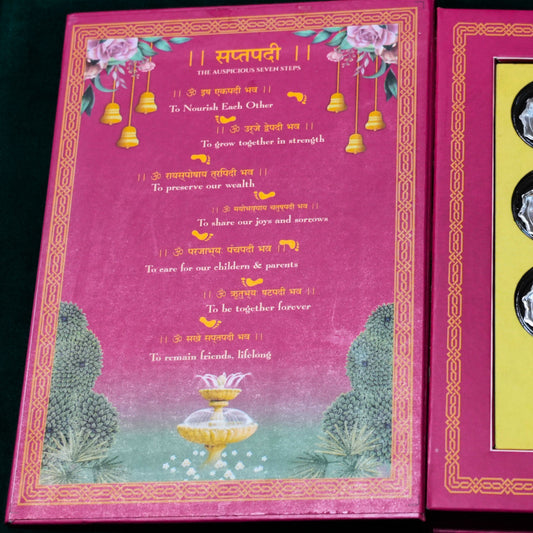 || सप्तपदी ||
THE AUSPICIOUS SEVEN STEPS
|| ॐ इष एकपदी भव ||
To Nourish Each Other
|| ॐ उर्जे द्वेपदी भव ||
To grow together in strength
|| ॐ रायस्पोषाय त्रिपदी भव ||
To preserve our wealth
|| ॐ मयोभव्याय चतुष्पदी भव ||
To share our joys and sorrows
|| ॐ परजाभ्यः पंचपदी भव ||
To care for our childern & parents
|| ॐ ऋतुभ्यः षटपदी भव ||
To be together forever
|| ॐ सखे सप्तपदी भव ||
To remain friends, lifelong